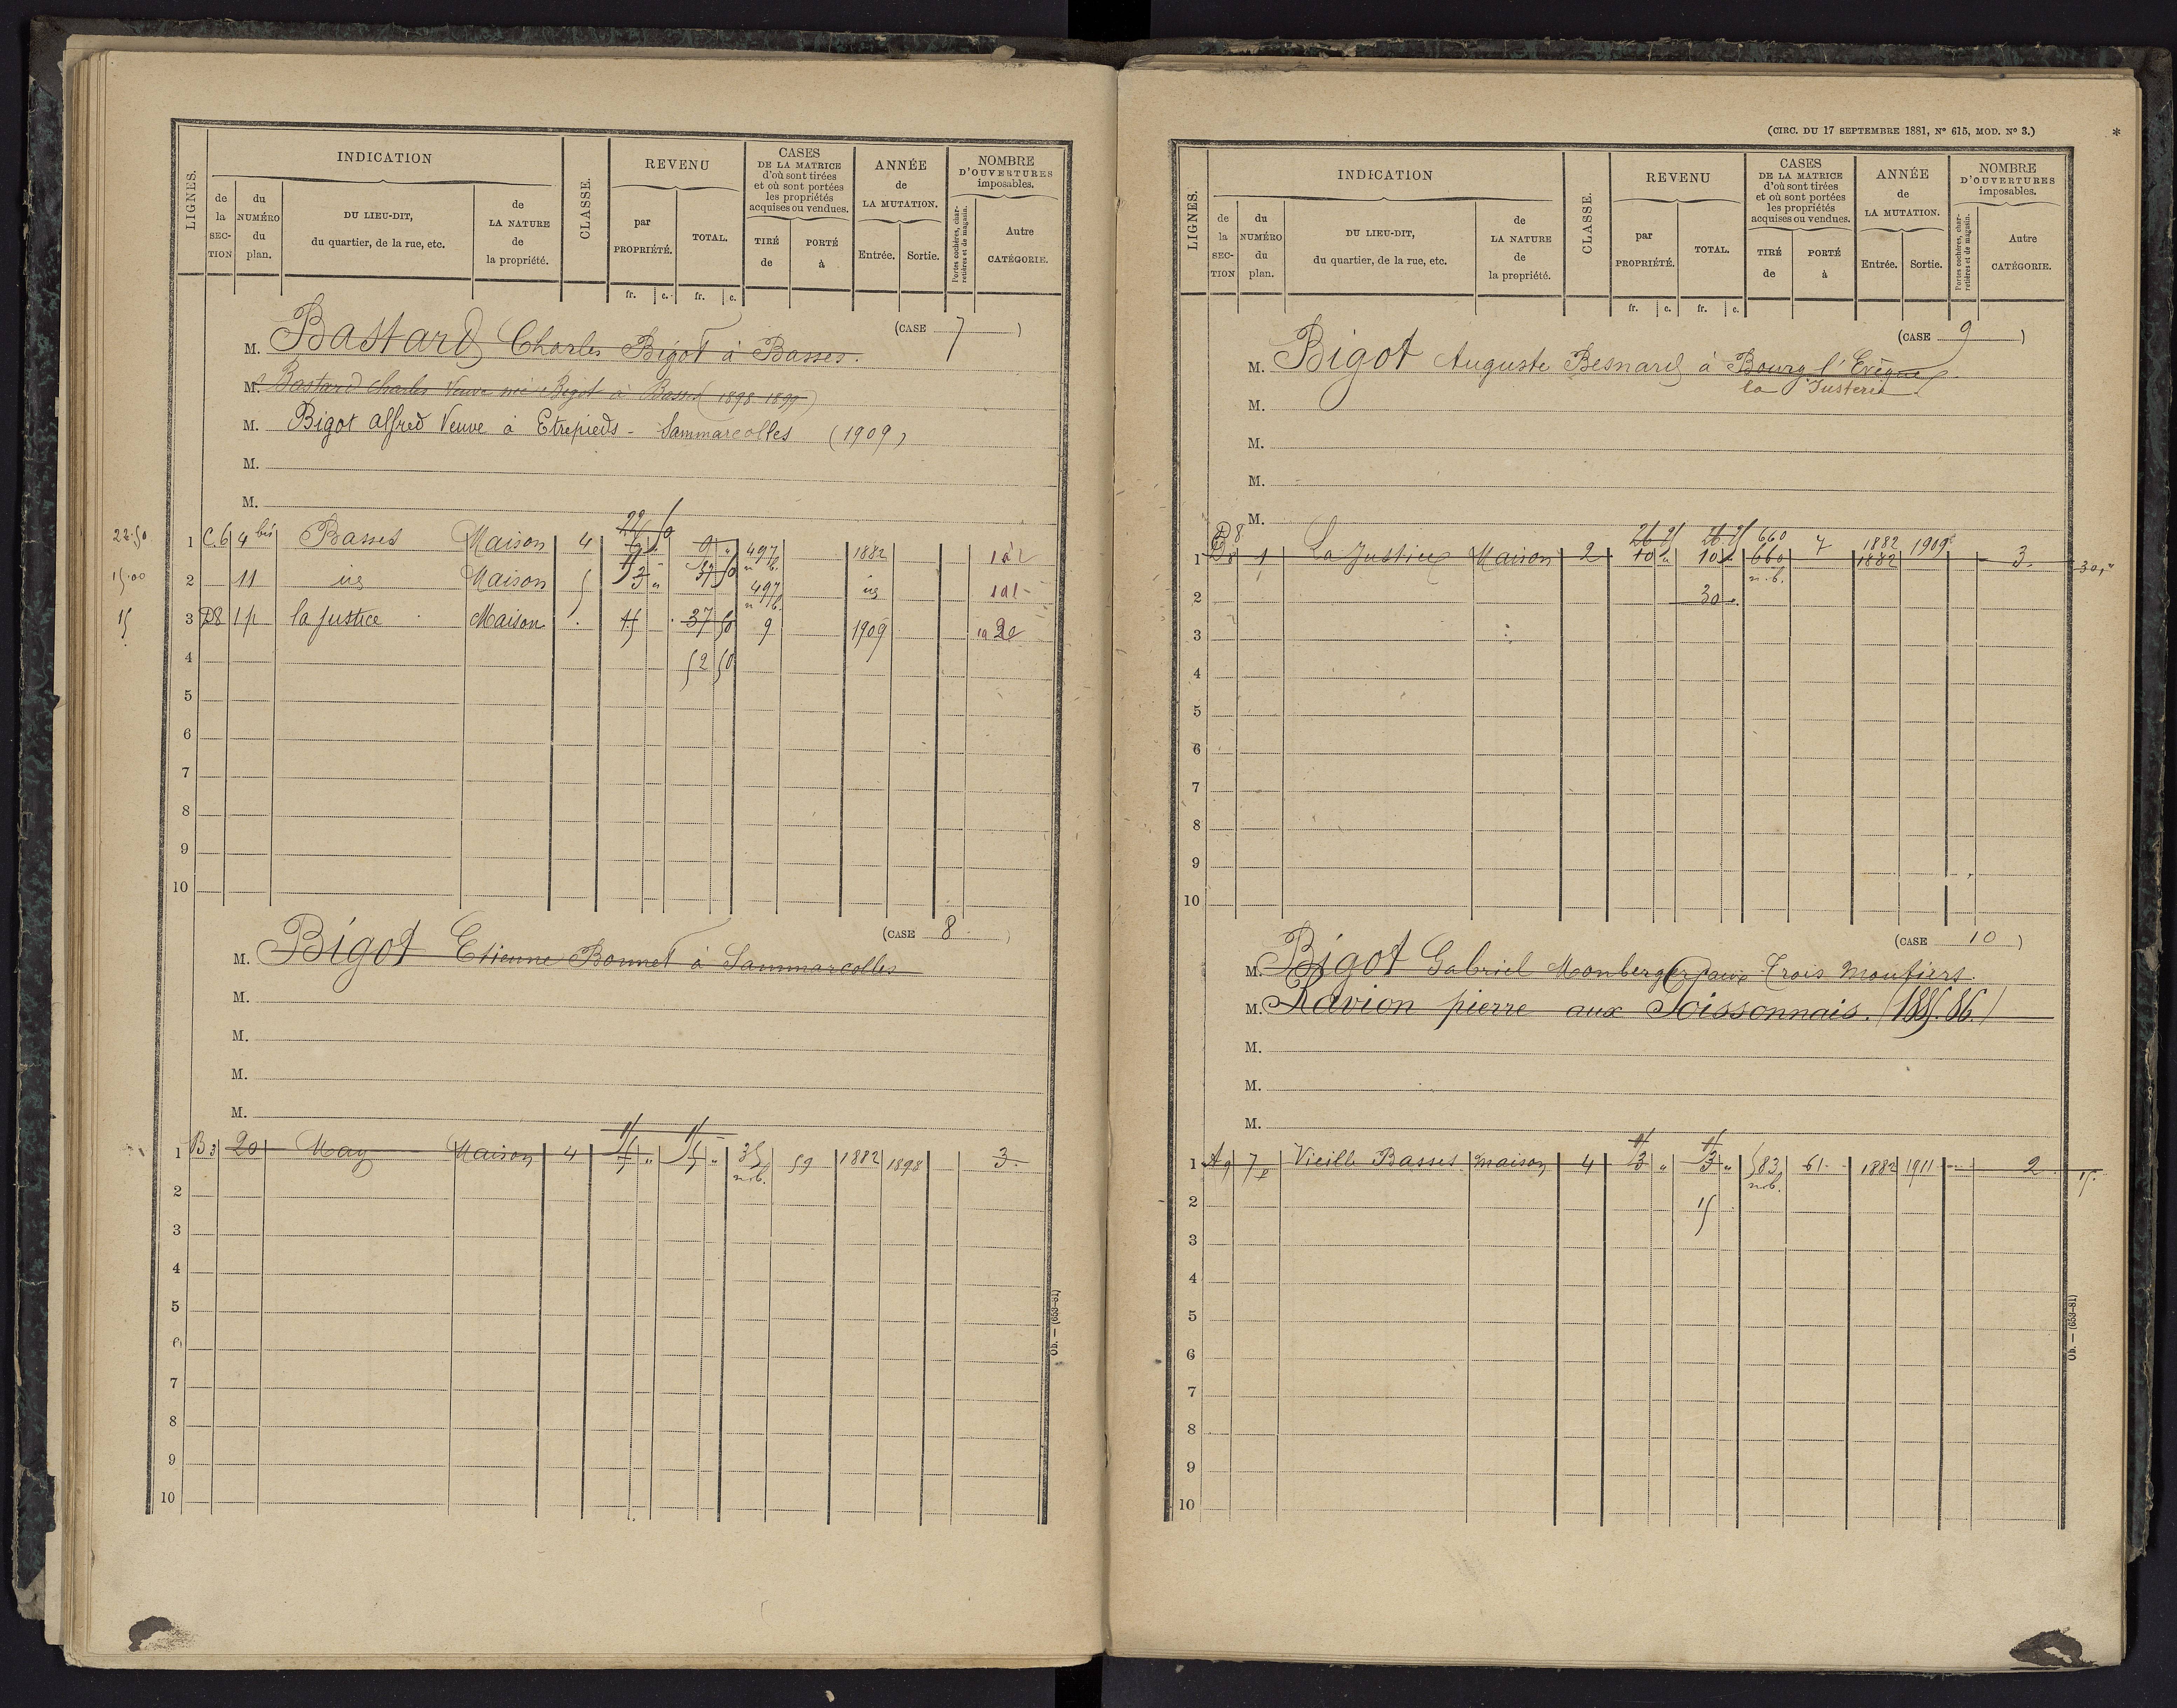 LIGNES.
INDICATION
de la SECTION
du NUMÉRO du plan.
DU LIEU-DIT, du quartier, de la rue, etc.
de LA NATURE de la propriété.
CLASSE.
REVENU
par PROPRIÉTÉ.
TOTAL.
fr. c. fr. c.
CASES DE LA MATRICE d'où sont tirées et où sont portées les propriétés acquises ou vendues.
TIRÉ de
PORTÉ à
ANNÉE de LA MUTATION.
Entrée. Sortie.
NOMBRE D'OUVERTURES imposables.
Portes cochères, charretières et de magasin.
Autre CATÉGORIE.
(CASE 7)
M. Bastard Charles Bigot à Basses.
M. Bastard Charles Veuve née Bigot à Basses (1898-1899)
M. Bigot Alfred Veuve à Etrepieds - Sammarcolles (1909)
M.
M.
22.50 1 C.6 4 bis Basses Maison 4 9 " 497 n.b. 1882
15.00 2 11 id Maison 5 37 50 497 n.b. id
15 3 D8 1p la justice Maison 15 37 50 9 1909
4 52 50
5
6
7
8
9
10
(CASE 8)
M. Bigot Etienne Bonnet à Sammarcolles
M.
M.
M.
M.
1 B3 20 May Maison 4 15 15 35 n.b. 59 1882 1898 3.
2
3
4
5
6
7
8
9
10
Ob. — (653-81)
(CIRC. DU 17 SEPTEMBRE 1881, Nº 615, MOD. Nº 3.)
*
LIGNES.
INDICATION
de la SECTION
du NUMÉRO du plan.
DU LIEU-DIT, du quartier, de la rue, etc.
de LA NATURE de la propriété.
CLASSE.
REVENU
par PROPRIÉTÉ.
TOTAL.
fr. c. fr. c.
CASES DE LA MATRICE d'où sont tirées et où sont portées les propriétés acquises ou vendues.
TIRÉ de
PORTÉ à
ANNÉE de LA MUTATION.
Entrée. Sortie.
NOMBRE D'OUVERTURES imposables.
Portes cochères, charretières et de magasin.
Autre CATÉGORIE.
(CASE 9)
M. Bigot Auguste Besnard à Bourg l'Evêque
la Justice
M.
M.
M.
M.
26 26 660 1882
1 D8 1 La Justice Maison 2 10 " 10 " 660 n.b. 7 1882 1909 3. 30,"
2 30
3
4
5
6
7
8
9
10
(CASE 10)
M. Bigot Gabriel Monberger aux Trois Moutiers.
M. Ravion pierre aux Soissonnais. (1885.86.)
M.
M.
M.
15 15
1 A9 7p Vieille Basses maison 4 3 " 3 " 583 n.b. 61 1882 1911 2 15.
2 15
3
4
5
6
7
8
9
10
Ob. — (653-81)